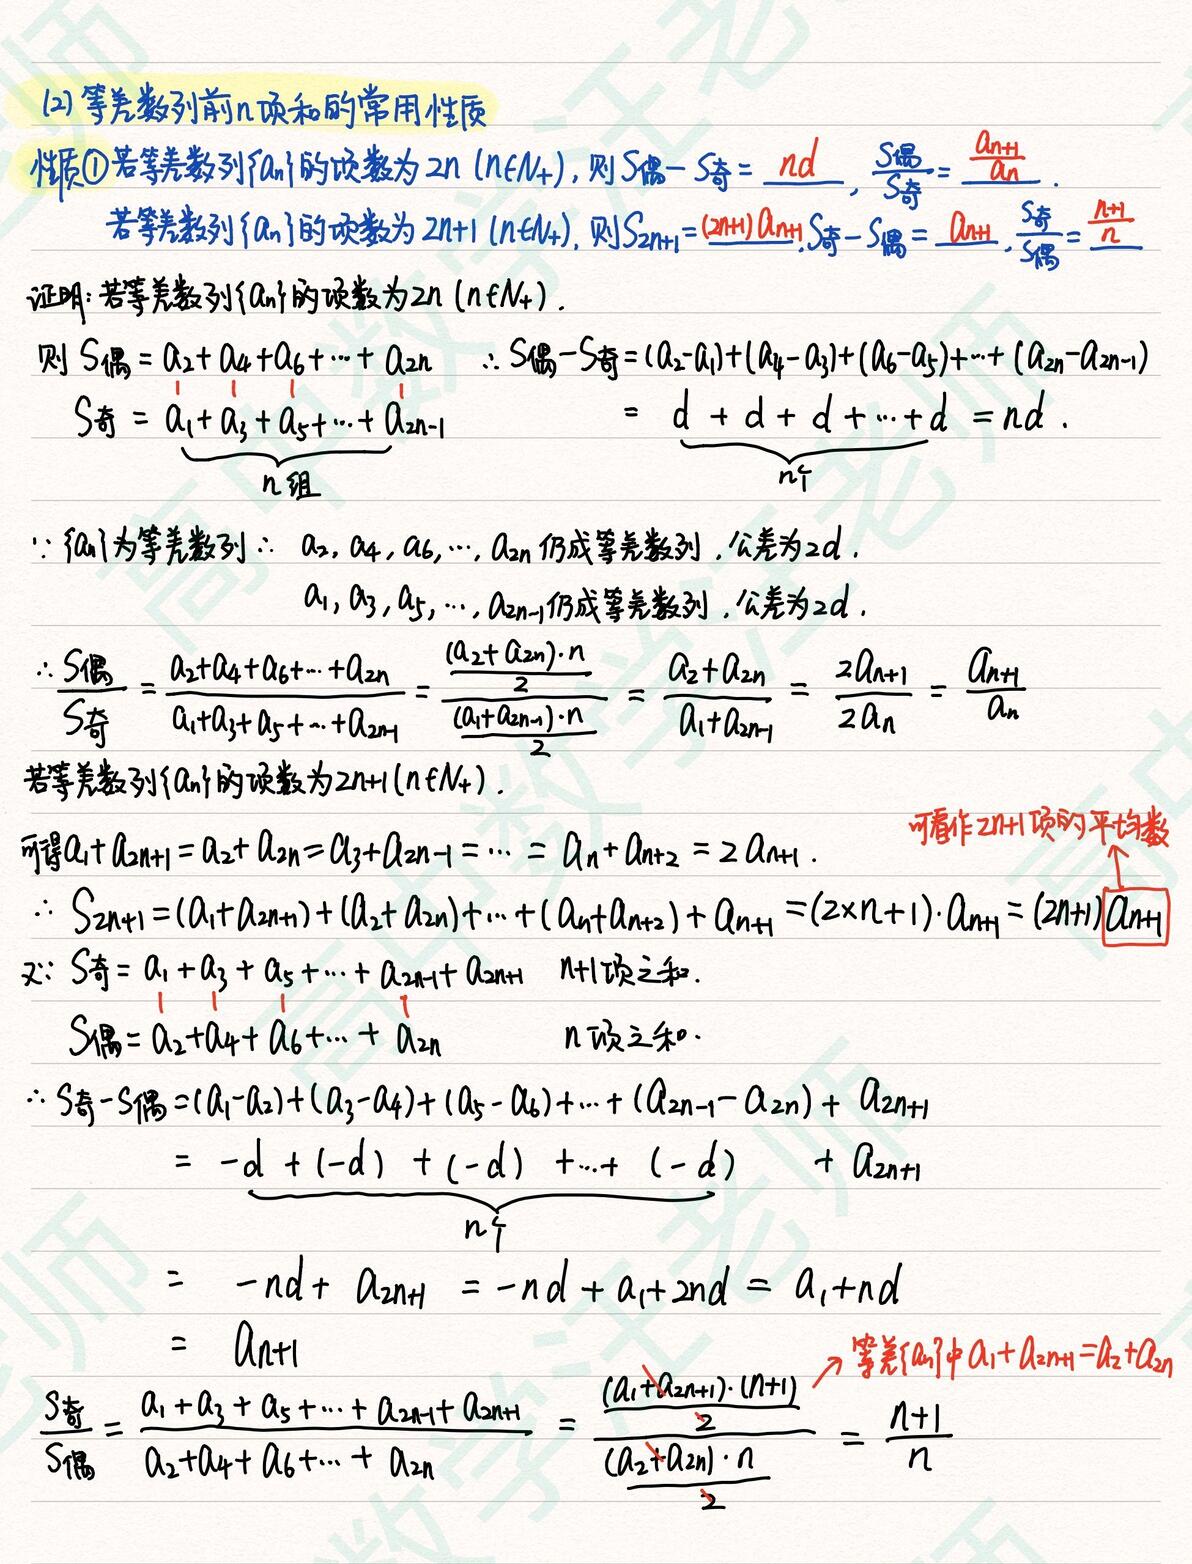 (2) 等差数列前n项和的常用性质
性质① 若等差数列{aₙ}的项数为2n (n∈N₊), 则S偶-S奇= nd , S偶/S奇= aₙ₊₁/aₙ .
若等差数列{aₙ}的项数为2n+1 (n∈N₊), 则S₂ₙ₊₁=(2n+1)aₙ₊₁, S奇-S偶= aₙ₊₁, S奇/S偶= (n+1)/n
证明: 若等差数列{aₙ}的项数为2n (n∈N₊).
则 S偶= a₂+a₄+a₆+…+a₂ₙ ∴ S偶-S奇=(a₂-a₁)+(a₄-a₃)+(a₆-a₅)+…+(a₂ₙ-a₂ₙ₋₁)
S奇 = a₁+a₃+a₅+…+a₂ₙ₋₁ = d + d + d +…+ d = nd .
n组 n个
∵ {aₙ}为等差数列 ∴ a₂, a₄, a₆, …, a₂ₙ 仍成等差数列, 公差为2d.
a₁, a₃, a₅, …, a₂ₙ₋₁仍成等差数列, 公差为2d.
∴ S偶/S奇 = (a₂+a₄+a₆+…+a₂ₙ)/(a₁+a₃+a₅+…+a₂ₙ₋₁) = ((a₂+a₂ₙ)·n/2)/((a₁+a₂ₙ₋₁)·n/2) = (a₂+a₂ₙ)/(a₁+a₂ₙ₋₁) = 2aₙ₊₁/2aₙ = aₙ₊₁/aₙ
若等差数列{aₙ}的项数为2n+1(n∈N₊).
可看作2n+1项的平均数
可得a₁+a₂ₙ₊₁=a₂+a₂ₙ=a₃+a₂ₙ₋₁=…= aₙ+aₙ₊₂ = 2aₙ₊₁ .
∴ S₂ₙ₊₁=(a₁+a₂ₙ₊₁)+(a₂+a₂ₙ)+…+(aₙ+aₙ₊₂)+aₙ₊₁ =(2×n+1)·aₙ₊₁=(2n+1)aₙ₊₁
又∵ S奇= a₁+a₃+a₅+…+a₂ₙ₋₁+a₂ₙ₊₁ n+1项之和.
S偶= a₂+a₄+a₆+…+ a₂ₙ n项之和.
∴ S奇-S偶=(a₁-a₂)+(a₃-a₄)+(a₅-a₆)+…+(a₂ₙ₋₁-a₂ₙ)+ a₂ₙ₊₁
= -d +(-d) +(-d) +…+ (-d) + a₂ₙ₊₁
n个
= -nd + a₂ₙ₊₁ = -nd + a₁+2nd = a₁+nd
= aₙ₊₁
等差{aₙ}中a₁+a₂ₙ₊₁=a₂+a₂ₙ
S奇/S偶 = (a₁+a₃+a₅+…+a₂ₙ₋₁+a₂ₙ₊₁)/(a₂+a₄+a₆+…+a₂ₙ) = ((a₁+a₂ₙ₊₁)·(n+1)/2)/((a₂+a₂ₙ)·n/2) = (n+1)/n
高中数学汪老师